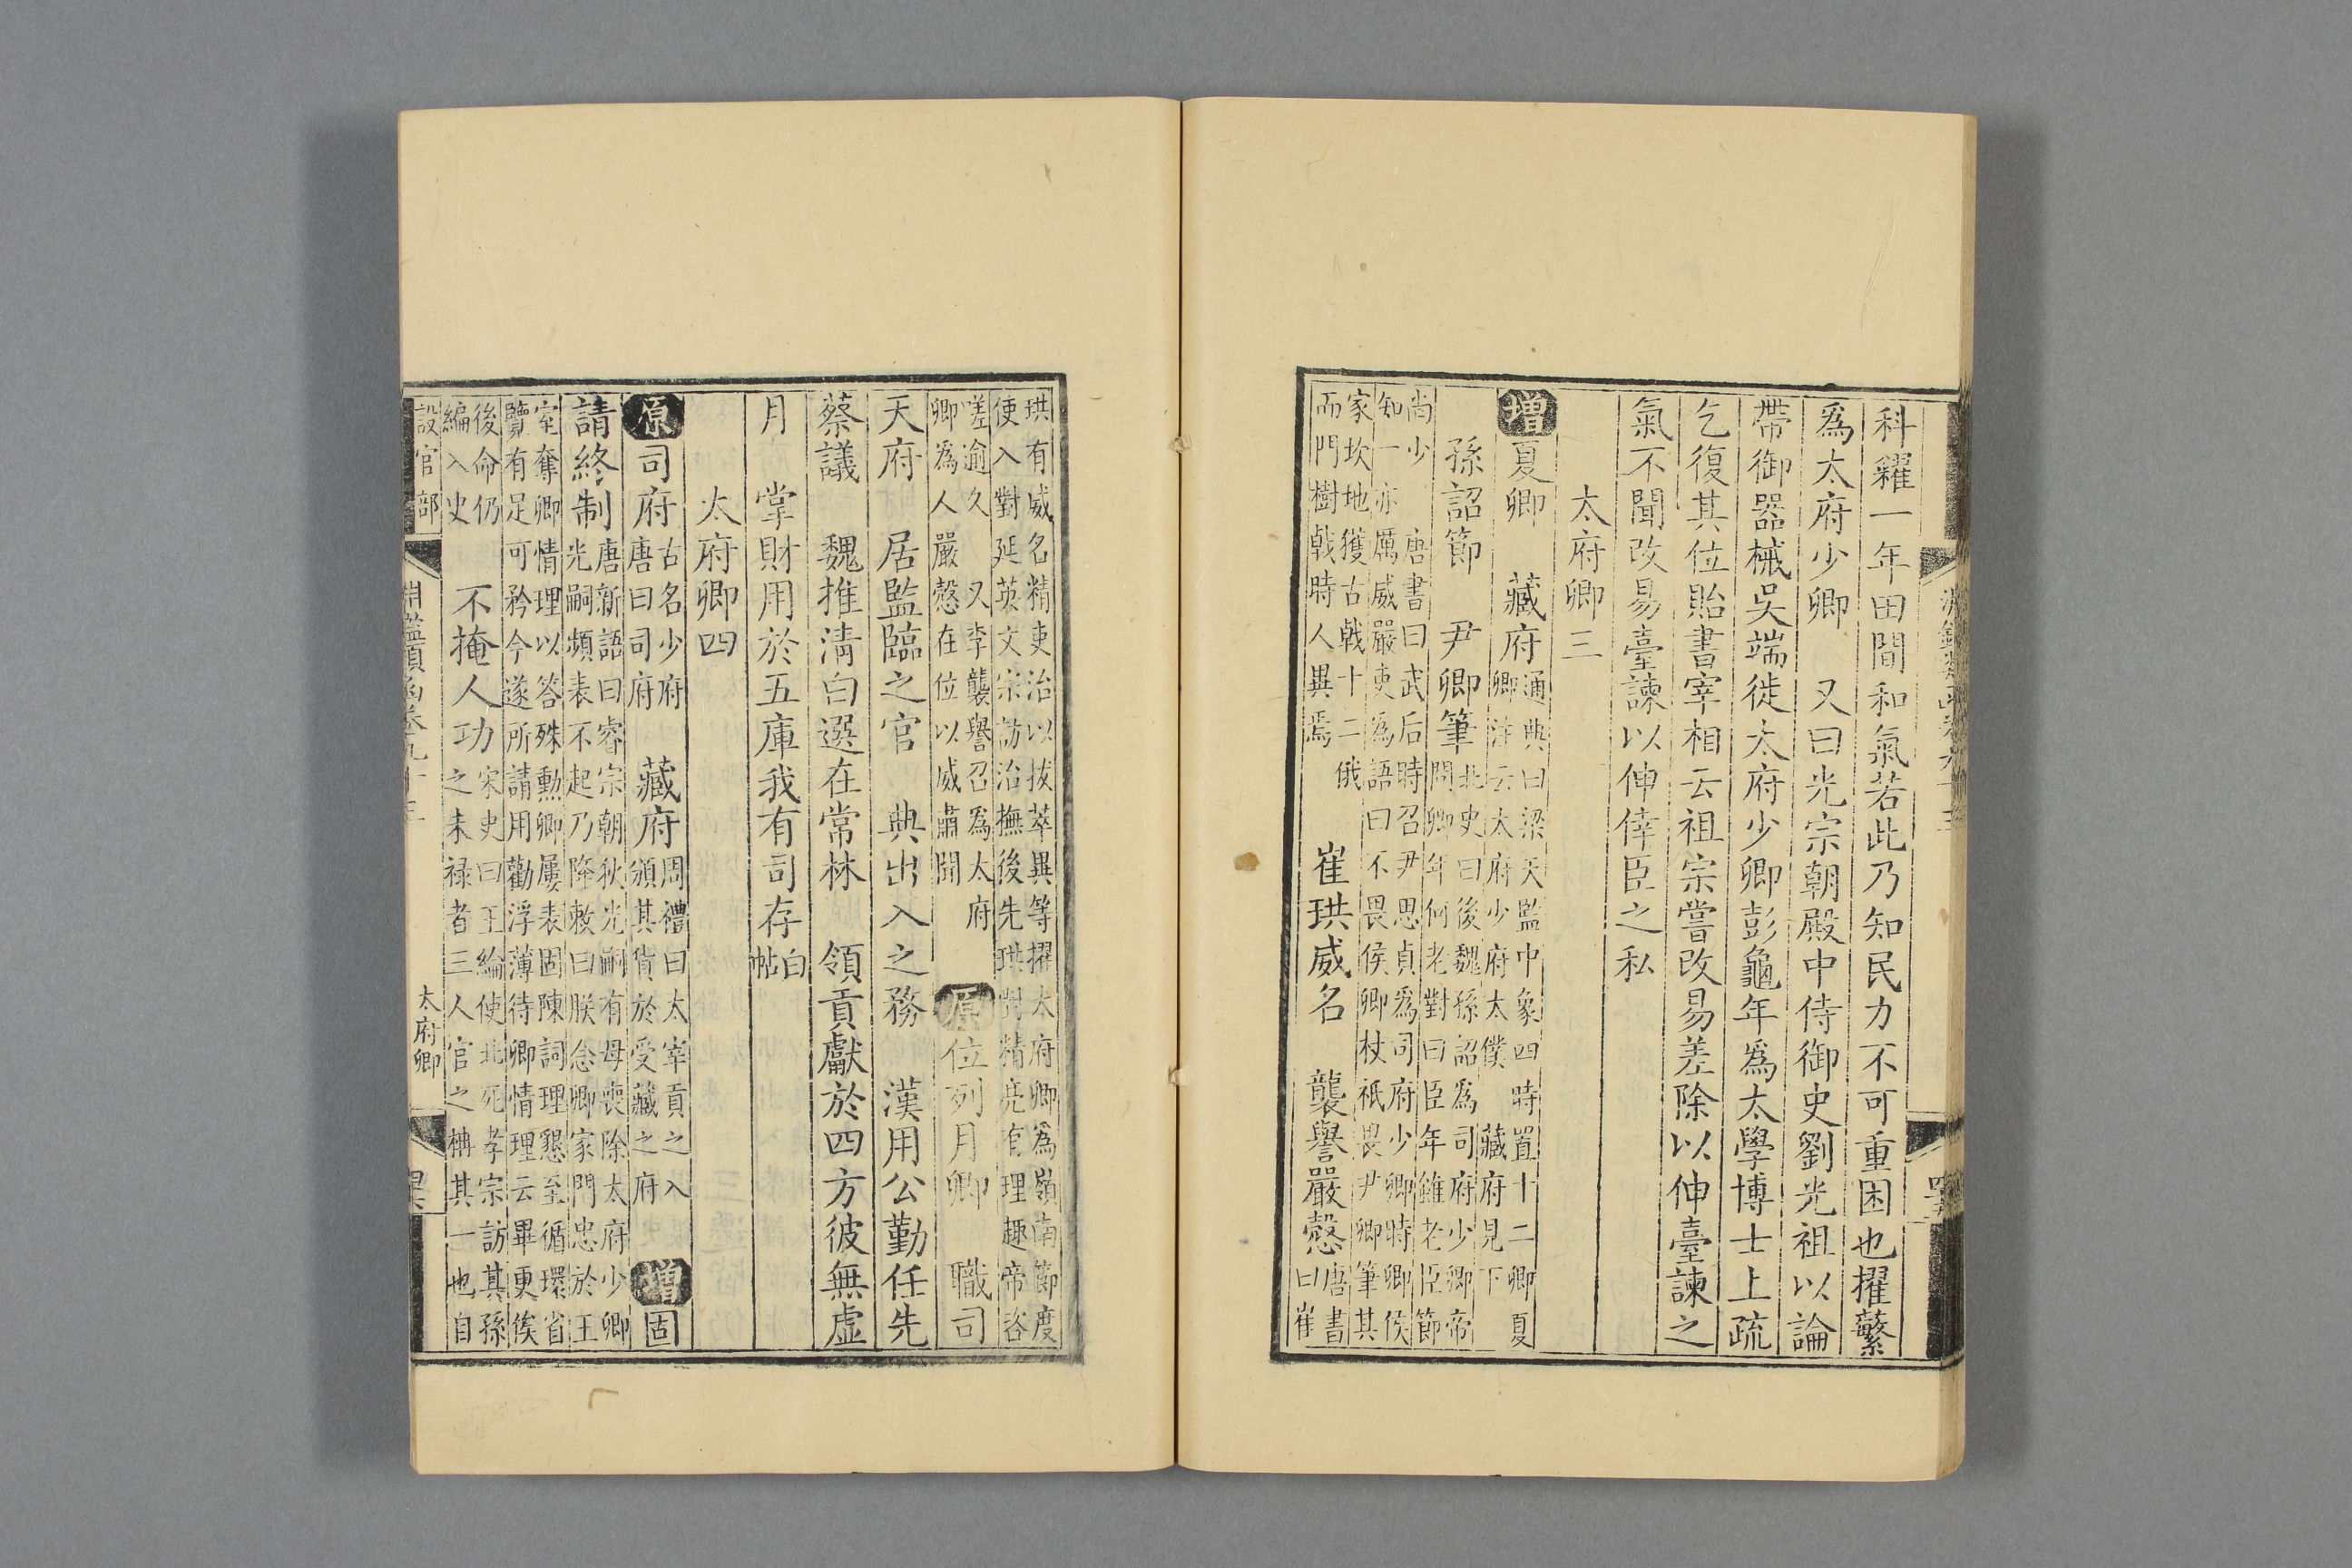 科糴一年田間和氣若此乃知民力不可重困也擢蘩
爲太府少卿　又曰光宗朝殿中侍御史劉光祖以論
帶御器械吳端徙太府少卿彭龜年爲太學博士上疏
乞復其位貽書宰相云祖宗嘗改易差除以伸臺諫之
氣不聞改易臺諫以伸倖臣之私
太府卿三
增夏卿　藏府通典曰梁天監中象四時置十二卿夏
卿注云太府少府太僕　藏府見下
孫詔節　尹卿筆北史曰後魏孫詔爲司府少卿帝
問卿年何老對曰臣年雖老臣節
尚少　唐書曰武后時召尹思貞爲司府少卿時卿侯
知一亦厲威嚴吏爲語曰不畏侯卿杖祇畏尹卿筆其
家坎地獲古戟十二俄
而門樹戟時人異焉　崔珙威名　襲譽嚴愨唐書
曰崔
珙有威名精吏治以拔萃異等擢太府卿爲嶺南節度
使入對延英文宗訪治撫後先珙對精亮有理趣帝咨
嗟逾久　又李襲譽召爲太府
卿爲人嚴愨在位以威肅聞　原位列月卿　職司
天府　居監臨之官　典出入之務　漢用公勤任先
蔡議　魏推淸白選在常林　領貢獻於四方彼無虛
月　掌財用於五庫我有司存白
帖
太府卿四
原司府古名少府
唐曰司府　藏府周禮曰太宰貢之入
頒其貨於受藏之府　增固
請終制唐新語曰睿宗朝狄光嗣有母喪除太府少卿
光嗣頻表不起乃降敕曰朕念卿家門忠於王
室奪卿情理以答殊勳卿屢表固陳詞理懇至循環省
覽有足可矜今遂所請用勸浮薄待卿情理云畢更俟
後命仍
編入史　不掩人功宋史曰王綸使北死孝宗訪其孫
之未祿者三人官之柟其一也自
設官部
太府卿